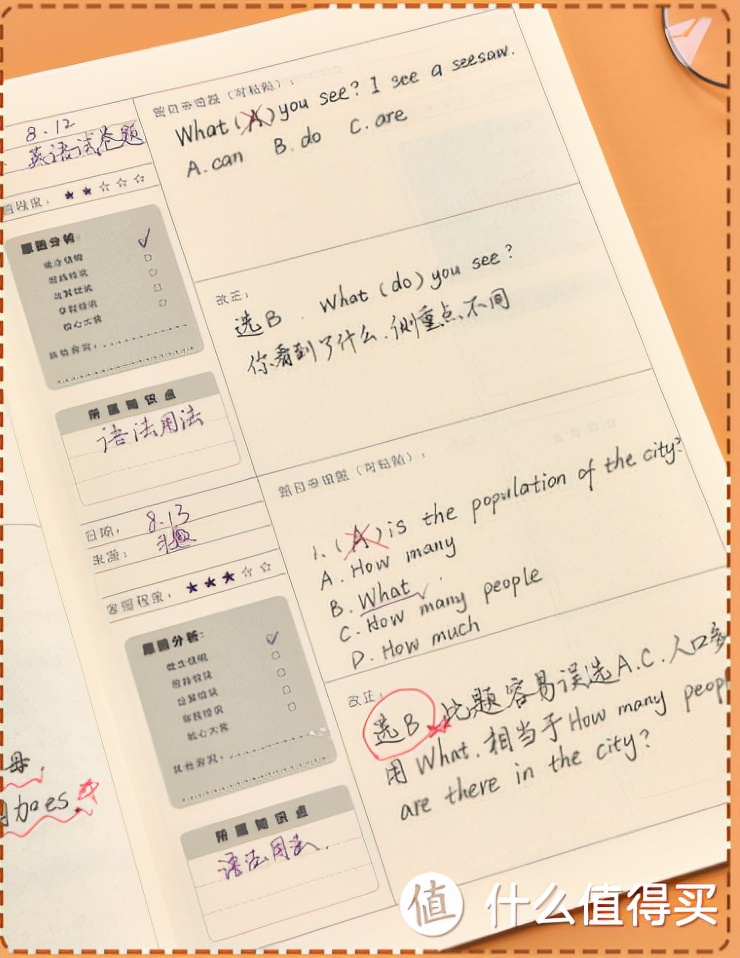 8.12
英语试卷题
题目与四题（可粘贴）：
What (A) you see? I see a seesaw.
A. can B. do C. are
原因分析：
改正：
选B. What (do) you see?
你看到了什么.侧重点不同
所属知识点
语法用法
日期：8.13
来源：
题（可粘贴）：
1. (A) is the population of the city?
A. How many
B. What ✓
C. How many people
D. How much
★★★☆☆
原因分析：
改正：
选B 此题容易误选A.C.人口多
用What.相当于How many peop
are there in the city?
所属知识点
语法用法.
母.
加es.
值 什么值得买